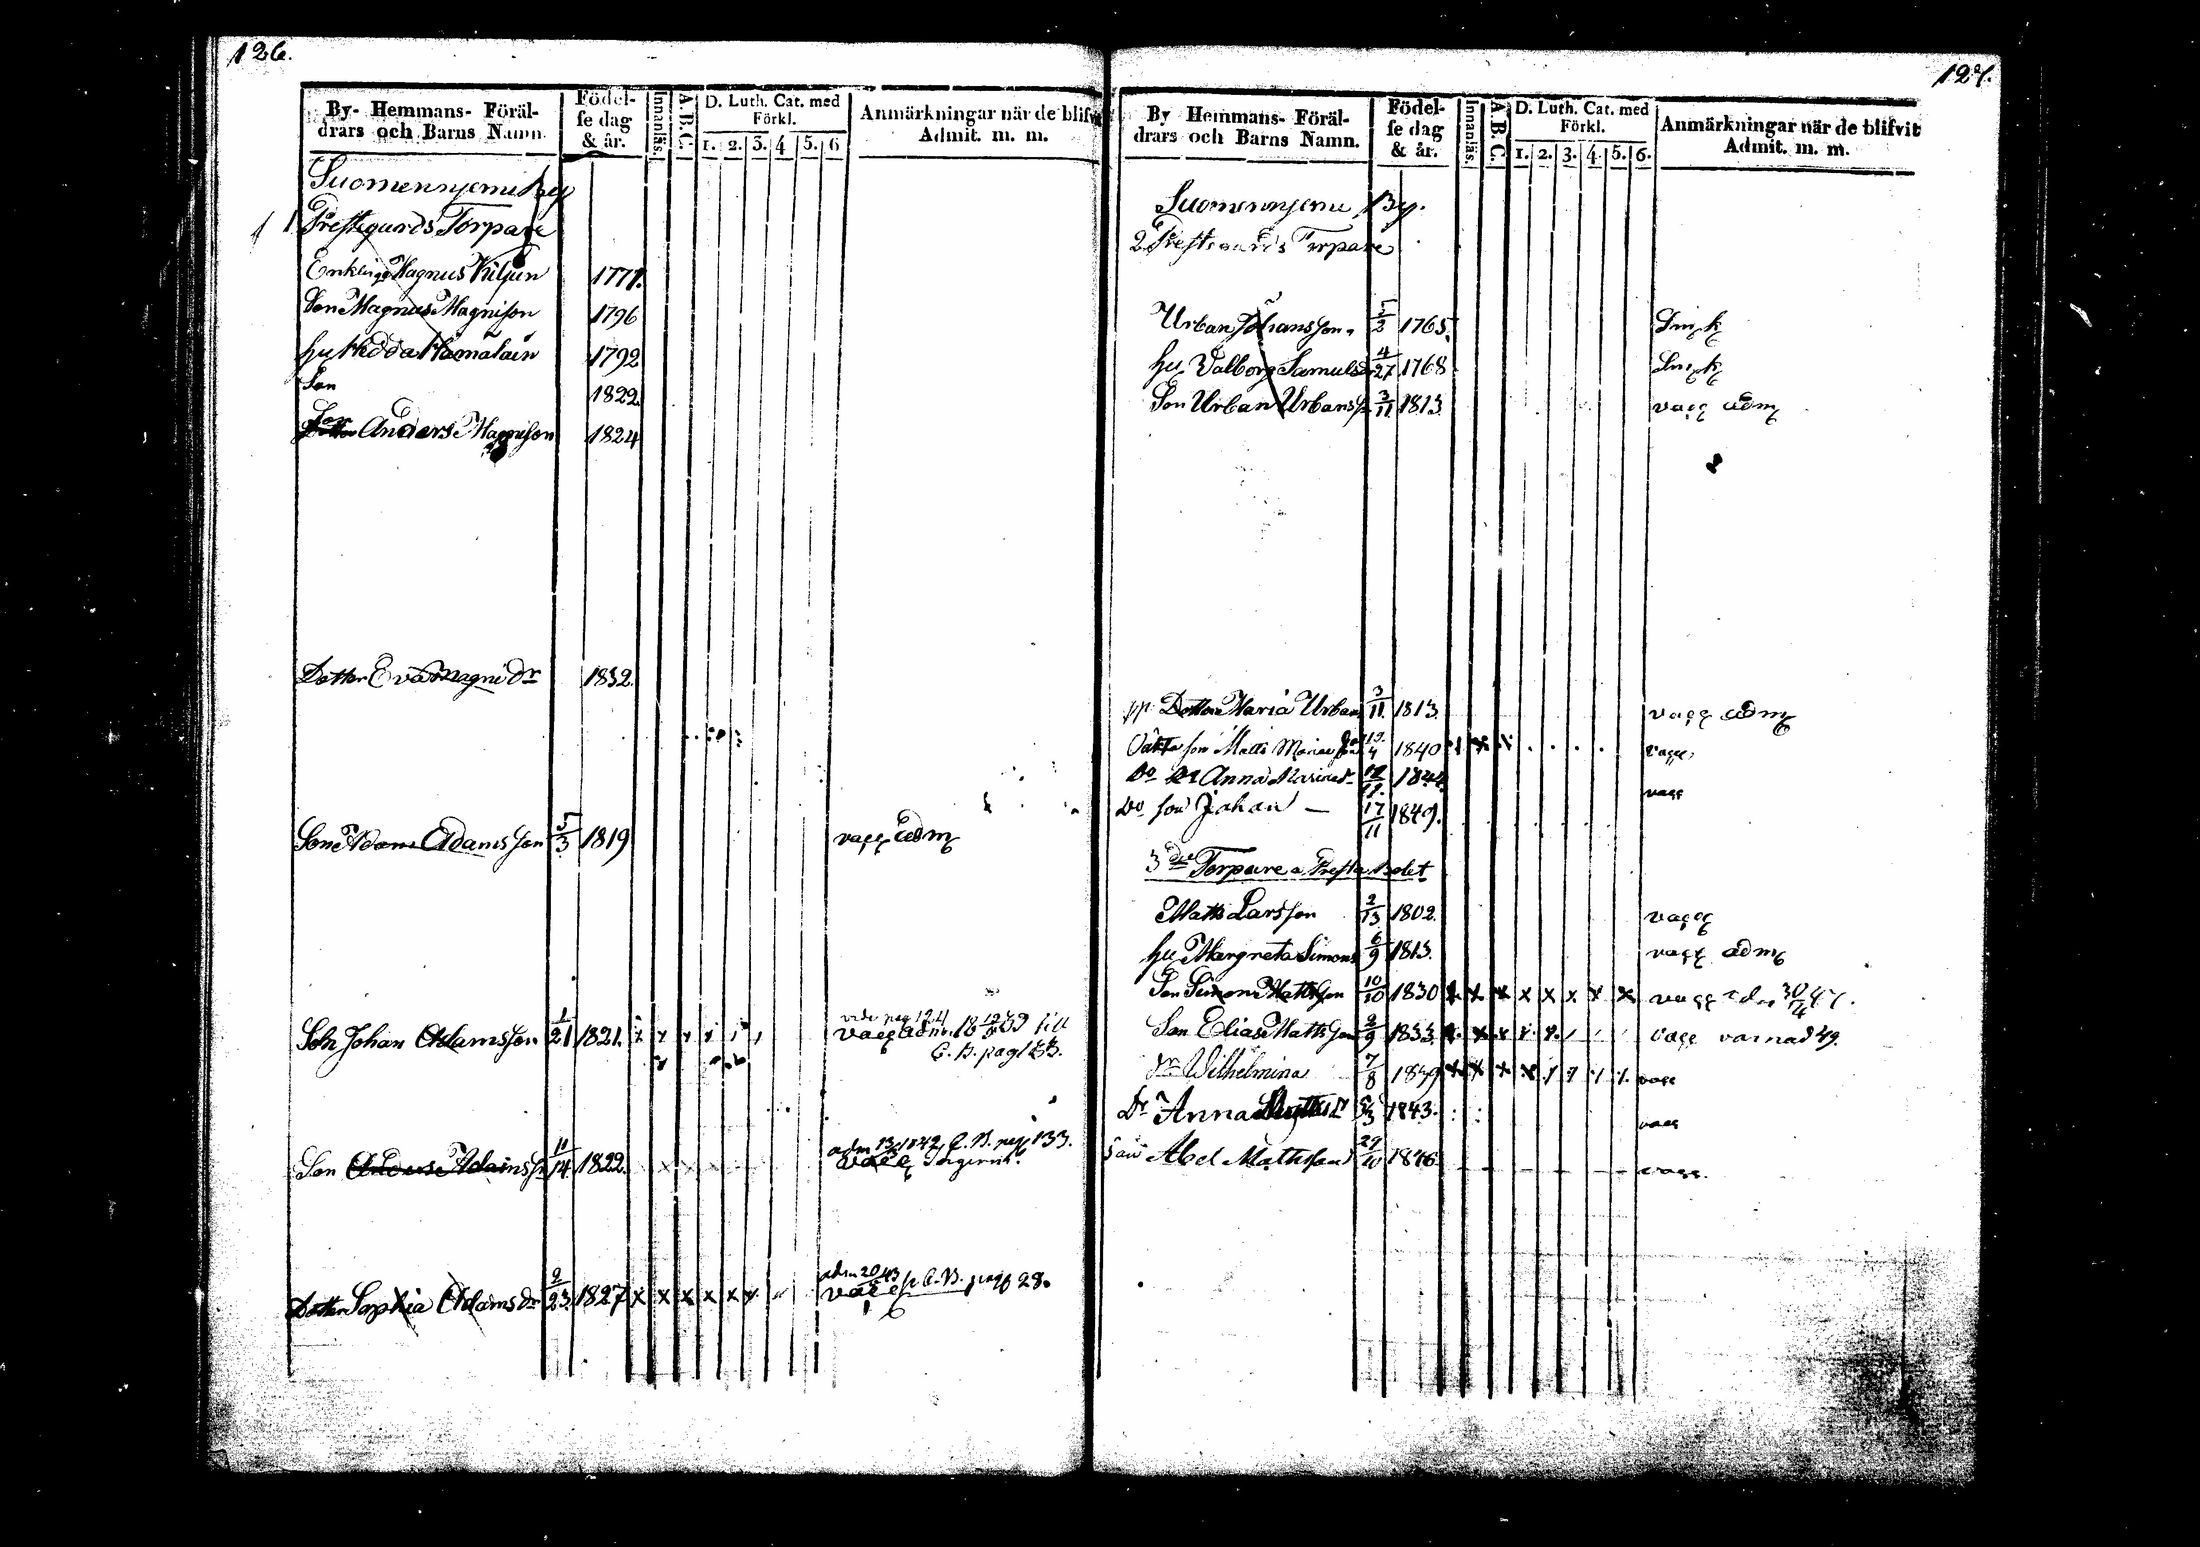 126.
By- Hemmans- Föräl-
drars och Barns Namn.
Födel-
se dag
& år.
Innanläs.
A.B.C.
D. Luth. Cat. med
Förkl.
1. 2. 3. 4 5. 6
Anmärkningar när de blifvit
Admit. m. m.
Suomenniemi By
1 Prestegårds Torpare
Enkling Magnus Kiljun 1771.
Son Magnus Magnison 1796
hu Hedda Hämäläin 1792
Son 1822.
Son Anders Magnison 1824
Dotter Eva Magni dr 1832.
Son Adam Adamsson 5/3 1819 vacc adm
vide pag 124
Son Johan Adamsson 1/21 1821. x x x x vacc adm 18 39 till
C. B. pag 133.
adm 1842 C. B. pag 133.
Son Adamsson 11/14 1822. vacc
adm 20 43
Dotter Sophia Adams dr 2/23 1827 x x x x x x vacc C. B. pag 28.
127.
By Hemmans- Föräl-
drars och Barns Namn.
Födel-
se dag
& år.
Innanläs.
A.B.C.
D. Luth. Cat. med
Förkl.
1. 2. 3. 4. 5. 6.
Anmärkningar när de blifvit
Admit. m. m.
Suomenniemi By.
2 Prestegårds Torpare
Urban Johansson 5/2 1765.
hu Valborg Samulsdr 4/27 1768
Son Urban Urbanss 3/11 1813. vacc adm
Dotter Maria Urban 3/11. 1813. vacc adm
Oäkta son Matts 19./4 1840 vacc
Do Dr Anna 1844. vacc
Do son Johan — 17/11 1849.
3die Torpare a Presta Bolet
Matts Larsson 2/13 1802. vacc
hu Margreta Simons 6/9 1813. vacc adm
Son Simon Mattsson 10/10 1830 x x x x x x x x vacc 30/4 47.
Son Elias Mattsson 2/9 1833. x x x x x vacc varnad 49.
Dr Wilhelmina 7/8 1839 x x x x vacc
Dr Anna 1843. vacc
Son Abel Mattsson 29/10 1846 vacc.